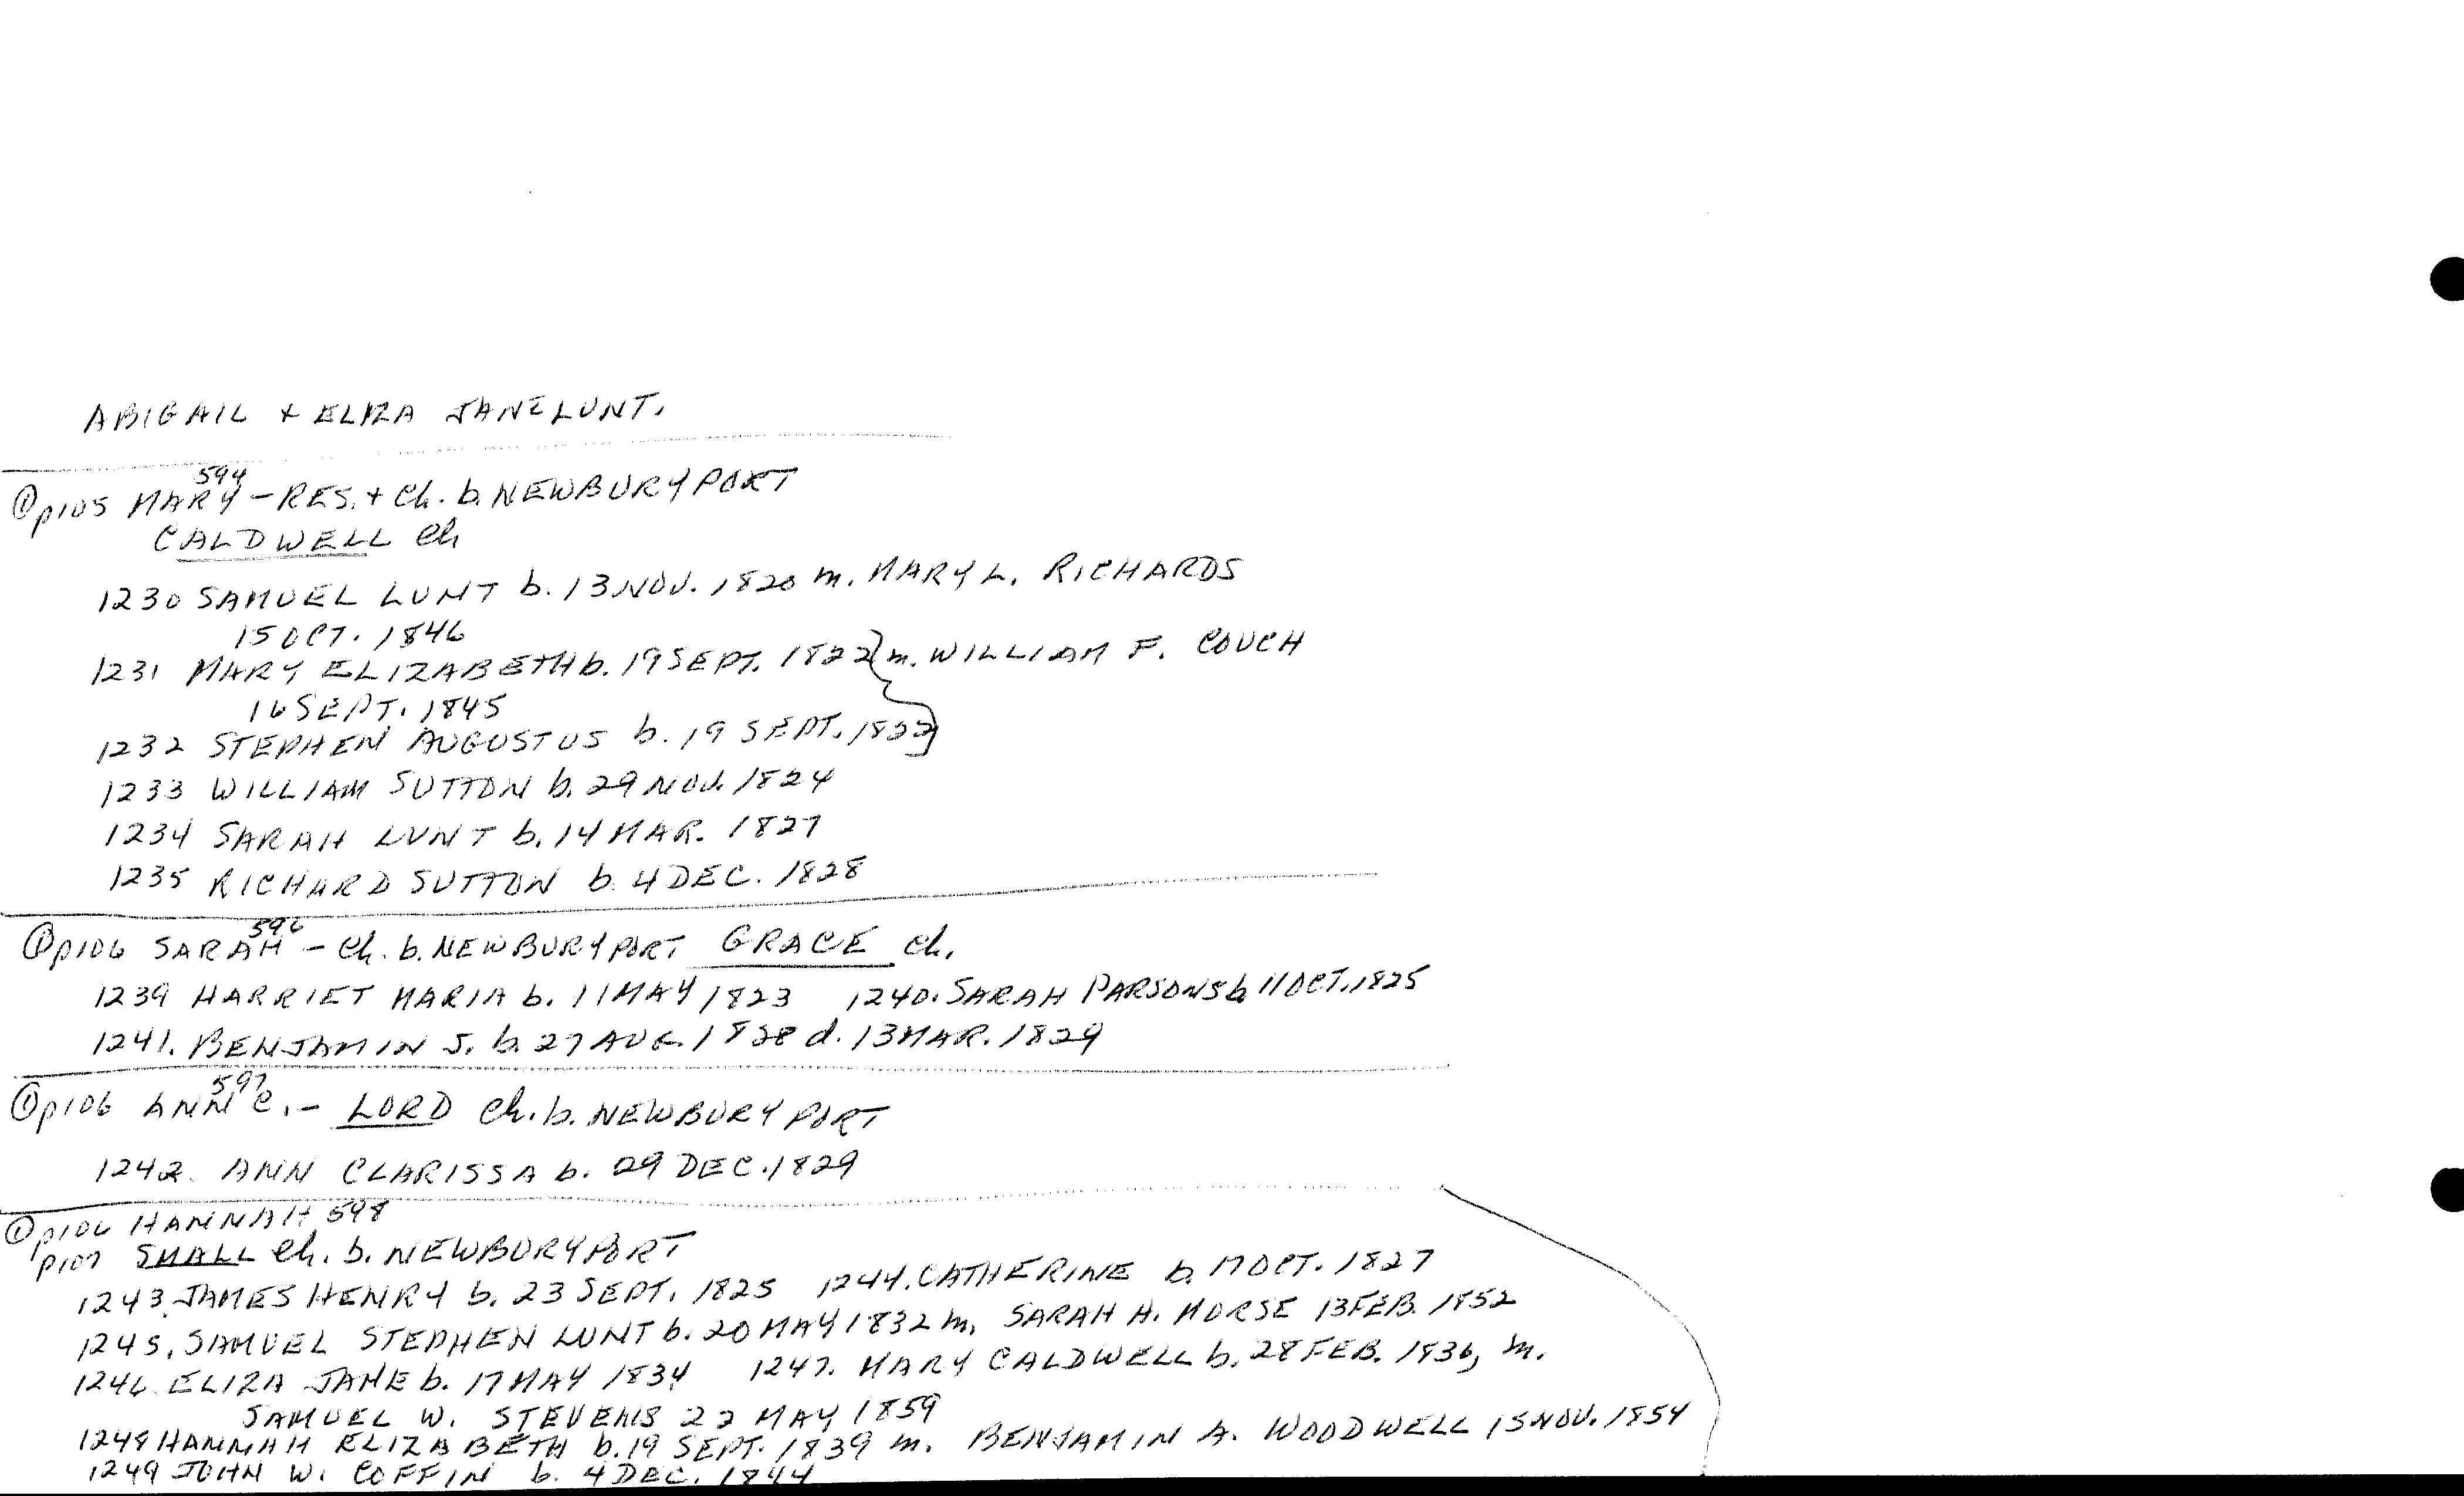 ABIGAIL + ELIZA JANE LUNT.
594
① p105 MARY - RES. + Ch. b. NEWBURYPORT
CALDWELL Ch
1230 SAMUEL LUNT b. 13 NOV. 1820 m. MARY L. RICHARDS
15 OCT. 1846
1231 MARY ELIZABETH b. 19 SEPT. 1822 m. WILLIAM F. COUCH
16 SEPT. 1845
1232 STEPHEN AUGUSTUS b. 19 SEPT. 1822
1233 WILLIAM SUTTON b. 29 NOV. 1824
1234 SARAH LUNT b. 14 MAR. 1827
1235 RICHARD SUTTON b. 4 DEC. 1828
596
① p106 SARAH - Ch. b. NEWBURYPORT GRACE Ch.
1239 HARRIET MARIA b. 11 MAY 1823 1240. SARAH PARSONS b 11 OCT. 1825
1241. BENJAMIN J. b. 27 AUG. 1828 d. 13 MAR. 1829
597
① p106 ANN C. - LORD Ch. b. NEWBURYPORT
1242. ANN CLARISSA b. 29 DEC. 1829
① p106 HANNAH 598
p107 SMALL Ch. b. NEWBURYPORT
1243. JAMES HENRY b. 23 SEPT. 1825 1244. CATHERINE b. 17 OCT. 1827
1245. SAMUEL STEPHEN LUNT b. 20 MAY 1832 m. SARAH H. MORSE 13 FEB. 1852
1246. ELIZA JANE b. 17 MAY 1834 1247. MARY CALDWELL b. 28 FEB. 1836, m.
SAMUEL W. STEVENS 22 MAY 1859
1248 HANNAH ELIZABETH b. 19 SEPT. 1839 m. BENJAMIN A. WOODWELL 15 NOV. 1854
1249 JOHN W. COFFIN b. 4 DEC. 1844